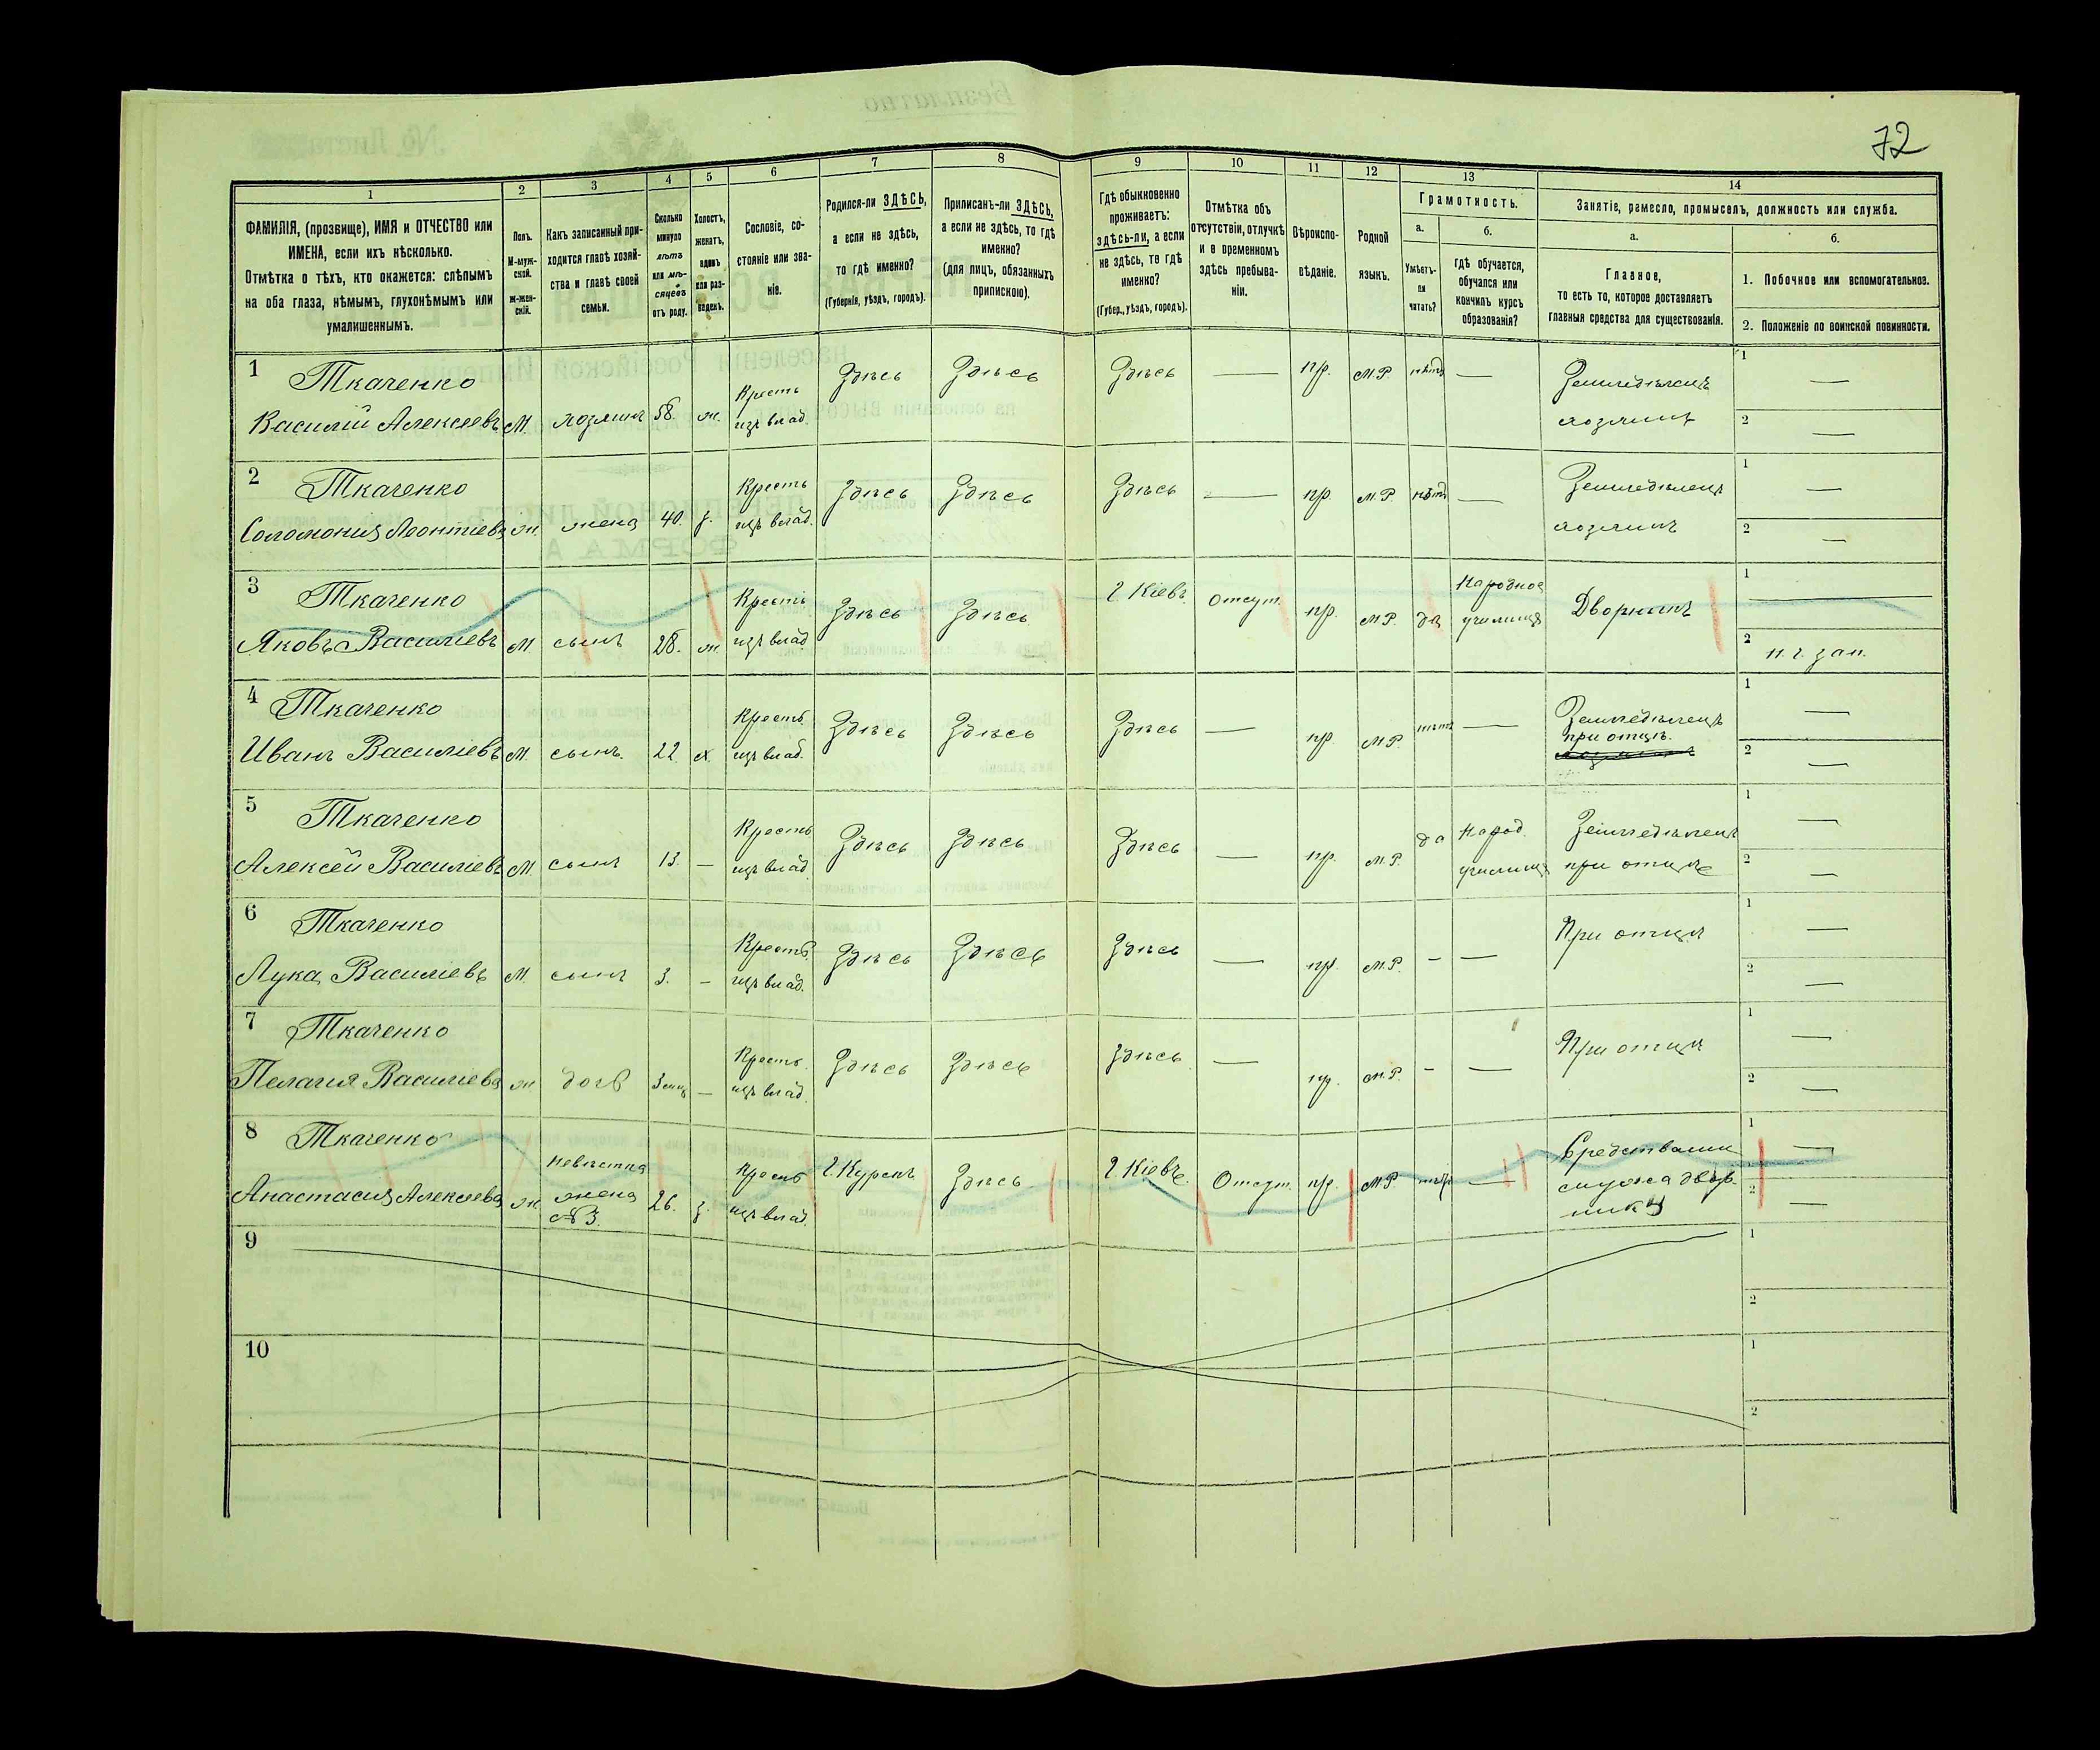 72
1
2
3
4
5
6
7
8
9
10
11
12
13
14
ФАМИЛІЯ, (прозвище), ИМЯ и ОТЧЕСТВО или
ИМЕНА, если ихъ нѣсколько.
Отмѣтка о тѣхъ, кто окажется: слѣпымъ
на оба глаза, нѣмымъ, глухонѣмымъ или
умалишеннымъ.
Полъ.
М-муж-
ской.
Ж-жен-
скій.
Какъ записанный при-
ходится главѣ хозяй-
ства и главѣ своей
семьи.
Сколько
минуло
лѣтъ
или мѣ-
сяцевъ
отъ роду.
Холостъ,
женатъ,
вдовъ
или раз-
веденъ.
Сословіе, со-
стояніе или зва-
ніе.
Родился-ли ЗДѢСЬ,
а если не здѣсь,
то гдѣ именно?
(Губернія, уѣздъ, городъ).
Приписанъ-ли ЗДѢСЬ,
а если не здѣсь, то гдѣ
именно?
(для лицъ, обязанныхъ
припискою).
Гдѣ обыкновенно
проживаетъ:
здѣсь-ли, а если
не здѣсь, то гдѣ
именно?
(Губер., уѣздъ, городъ).
Отмѣтка объ
отсутствіи, отлучкѣ
и о временномъ
здѣсь пребыва-
ніи.
Вѣроиспо-
вѣданіе.
Родной
языкъ.
Грамотность.
а.
Умѣетъ-
ли
читать?
б.
Гдѣ обучается,
обучался или
кончилъ курсъ
образованія?
Занятіе, ремесло, промыселъ, должность или служба.
а.
Главное,
то есть то, которое доставляетъ
главныя средства для существованія.
б.
1. Побочное или вспомогательное.
2. Положеніе по воинской повинности.
1 Ткаченко
Василій Алексеевъ М. хозяинъ 58. ж. Кресть изъ влад. Здѣсь Здѣсь Здѣсь — пр. М.Р. нѣтъ — Земледѣлецъ хозяинъ 1 — 2 —
2 Ткаченко
Соломонія Леонтіева ж. жена 40. з. Кресть изъ влад. Здѣсь Здѣсь Здѣсь — пр. М.Р. нѣтъ — Земледѣлецъ хозяинъ 1 — 2 —
3 Ткаченко
Яковъ Василіевъ М сынъ 28. ж. Кресть изъ влад Здѣсь Здѣсь Г. Кіевъ. Отсут. пр. М.Р. да Народное училище Дворникъ 1 — 2 н. г. зап.
4 Ткаченко
Иванъ Василіевъ М. сынъ. 22 х. Кресть. изъ влад. Здѣсь Здѣсь Здѣсь — пр. М.Р. нѣтъ — Земледѣлецъ при отцѣ. 1 — 2 —
5 Ткаченко
Алексѣй Василіевъ М. сынъ 13. — Кресть изъ влад. Здѣсь Здѣсь Здѣсь — пр. М.Р. да Народ. училище Земледѣлецъ при отцѣ 1 — 2 —
6 Ткаченко
Лука Василіевъ М. сынъ 3. — Кресть. изъ влад. Здѣсь Здѣсь Здѣсь — пр. М.Р. — — При отцѣ 1 — 2 —
7 Ткаченко
Пелагія Василіева ж. дочь 3 мц — Кресть. изъ влад. Здѣсь Здѣсь Здѣсь — пр. М.Р. — — При отцѣ 1 — 2 —
8 Ткаченко
Анастасія Алексеева ж. Невѣстка жена №3. 26. з. Кресть изъ влад. Г. Курскъ Здѣсь Г. Кіевъ. Отсут. пр. М.Р. нѣтъ — Средствами мужа дворника 1 — 2 —
9 1 2
10 1 2